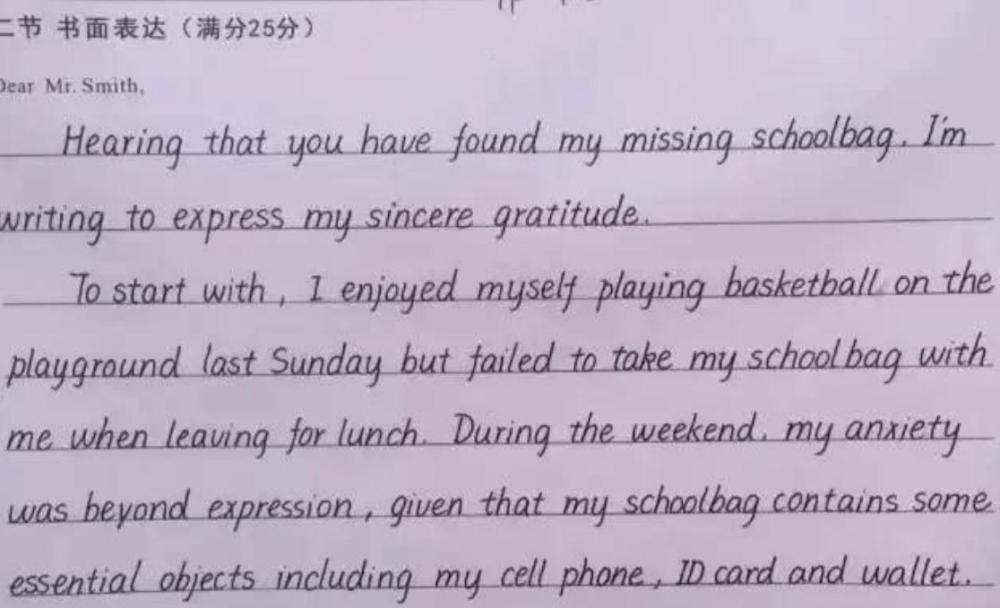 二节 书面表达（满分25分）
Dear Mr. Smith,
Hearing that you have found my missing schoolbag, I'm
writing to express my sincere gratitude.
To start with, I enjoyed myself playing basketball on the
playground last Sunday but failed to take my schoolbag with
me when leaving for lunch. During the weekend, my anxiety
was beyond expression, given that my schoolbag contains some
essential objects including my cell phone, ID card and wallet.